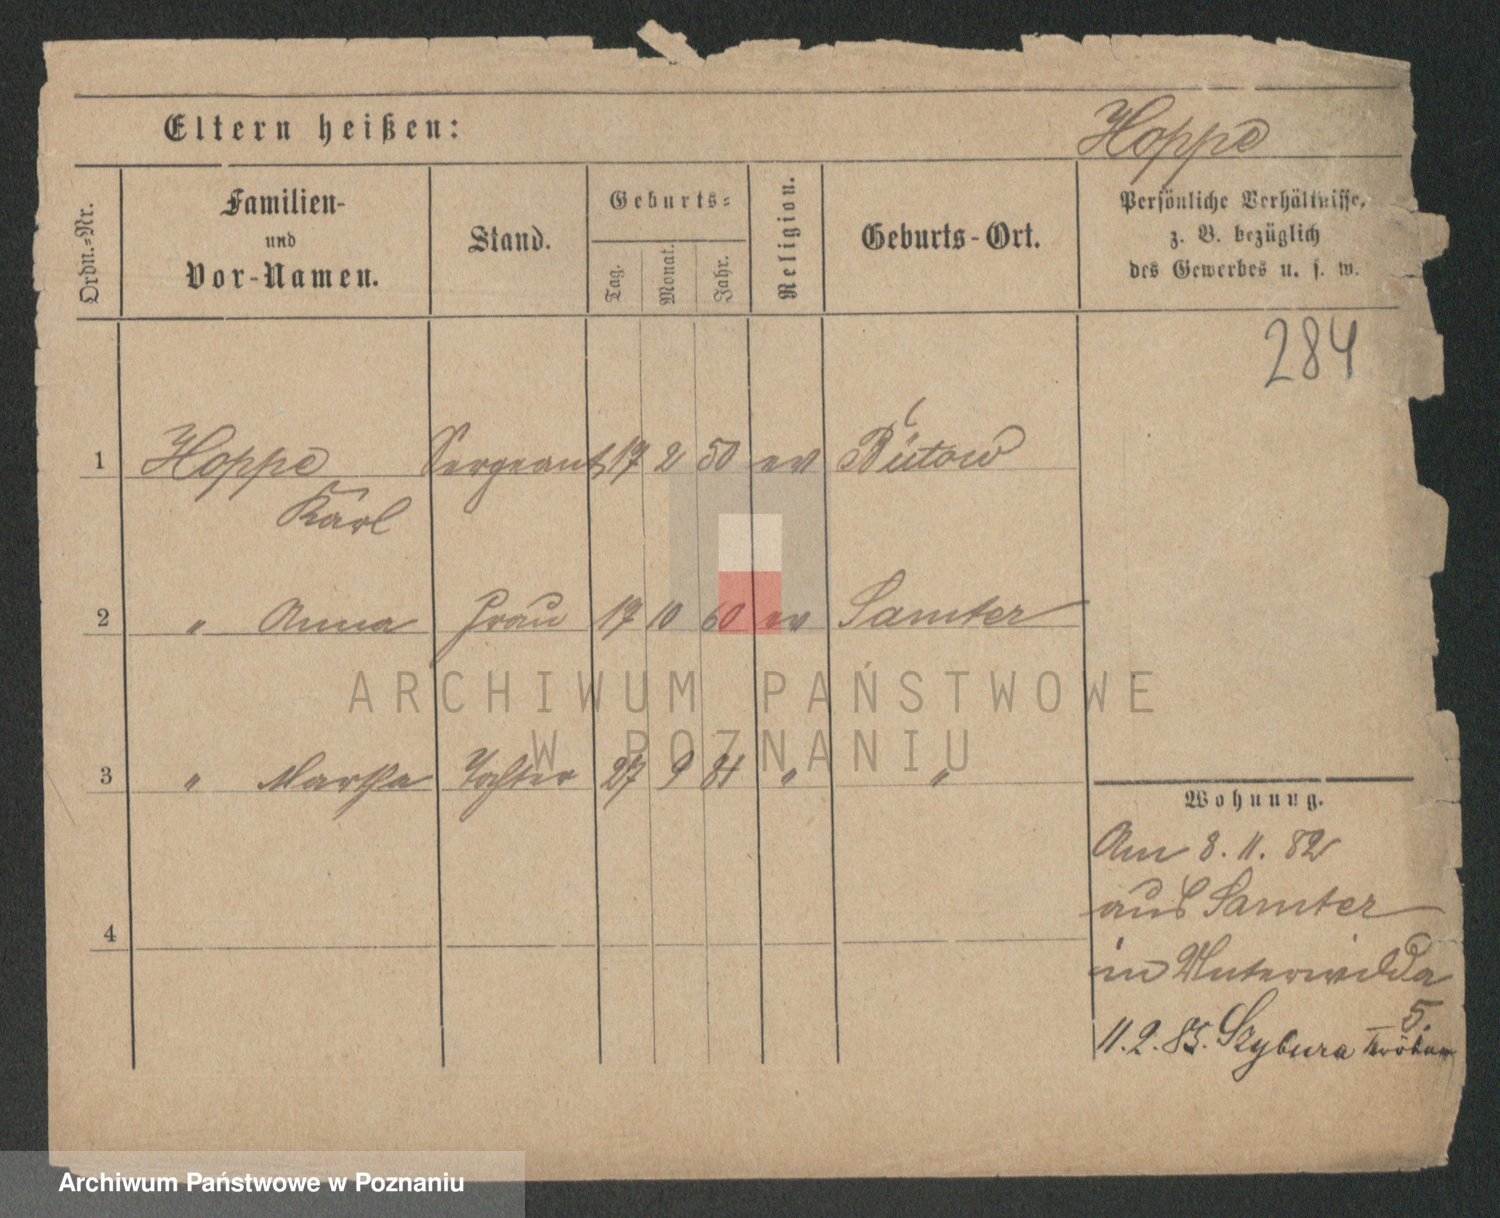 Eltern heißen:
Hoppe
Ordn.-Nr.
Familien-
und
Vor-Namen.
Stand.
Geburts-
Tag.
Monat.
Jahr.
Religion.
Geburts-Ort.
Persönliche Verhältnisse,
z. B. bezüglich
des Gewerbes u. s. w.
284
1 Hoppe Sergeant 17 2 50 ev Bütow
Karl
2 " Anna Frau 17 10 60 ev Samter
ARCHIWUM PAŃSTWOWE
W POZNANIU
3 " Martha Tochter 27 9 81 " "
4
Wohnung.
Am 8. 11. 82
aus Samter
in Unterwilda
5.
11. 2. 85. Szybura
Archiwum Państwowe w Poznaniu